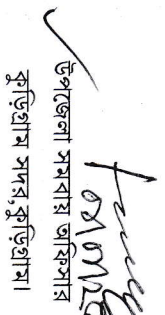 উপজেলা সমবায় অফিসার
কুড়িগ্রাম সদর, কুড়িগ্রাম।